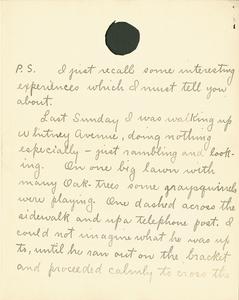 P.S. I just recall some interesting
experiences which I must tell you
about.
Last Sunday I was walking up
Whitney Avenue, doing nothing
especially - just rambling and look-
ing. On one big lawn with
many Oak-trees some gray squirrels
were playing. One dashed across the
sidewalk and up a telephone post. I
could not imagine what he was up
to, until he ran out on the bracket
and proceeded calmly to cross the